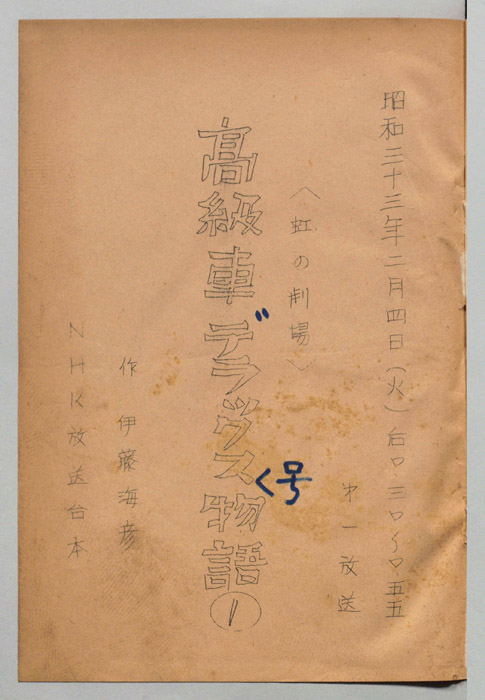 昭和三十三年二月四日（火）后〇、三〇〜〇、五五
オ一放送
〈虹の劇場〉
高級車デラックス号物語①
作 伊藤海彦
NHK放送台本